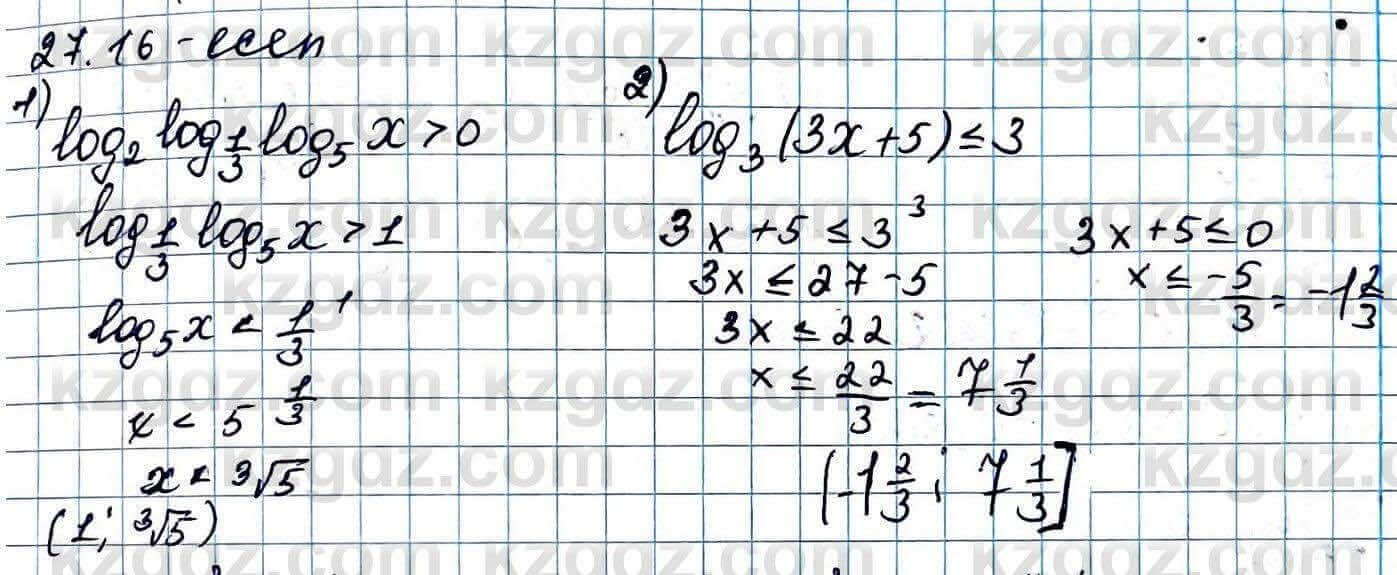 27.16-есеп
1) log₂ log_{1/3} log₅ x > 0
log_{1/3} log₅ x > 1
log₅ x < (1/3)¹
x < 5^{1/3}
x < ³√5
(1; ³√5)
2) log₃ (3x+5) ≤ 3
3x+5 ≤ 3³
3x ≤ 27-5
3x ≤ 22
x ≤ 22/3 = 7 1/3
3x+5 ≤ 0
x ≤ -5/3 = -1 2/3
(-1 2/3; 7 1/3]
kzgdz.com